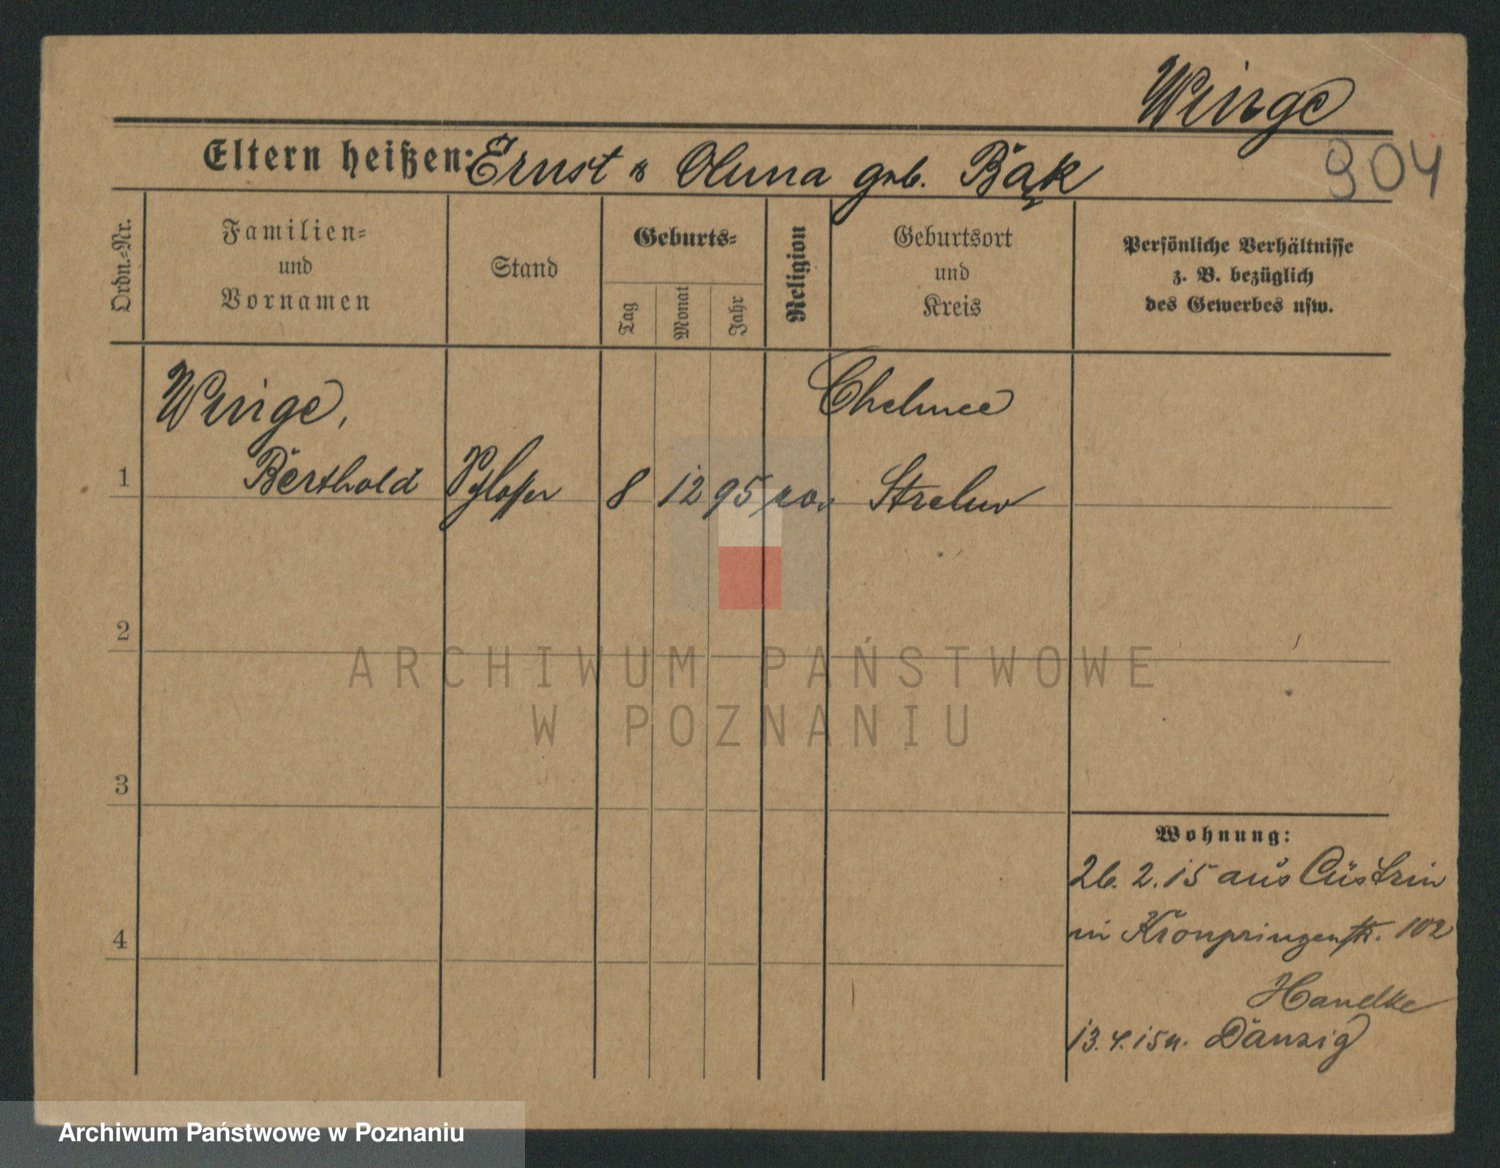 Winge
904
Eltern heißen: Ernst & Olma geb. Bąk
Ordn.-Nr.
Familien-
und
Vornamen
Stand
Geburts-
Tag
Monat
Jahr
Religion
Geburtsort
und
Kreis
Persönliche Verhältnisse
z. B. bezüglich
des Gewerbes usw.
Winge,
Chelmce
1 Berthold Schlosser 8 12 95 Strelno
2
3
4
Wohnung:
26. 2. 15 aus Cüstrin
in Kronprinzenstr. 102
Handke
13. 4. 15 n. Danzig
ARCHIWUM PAŃSTWOWE
W POZNANIU
Archiwum Państwowe w Poznaniu